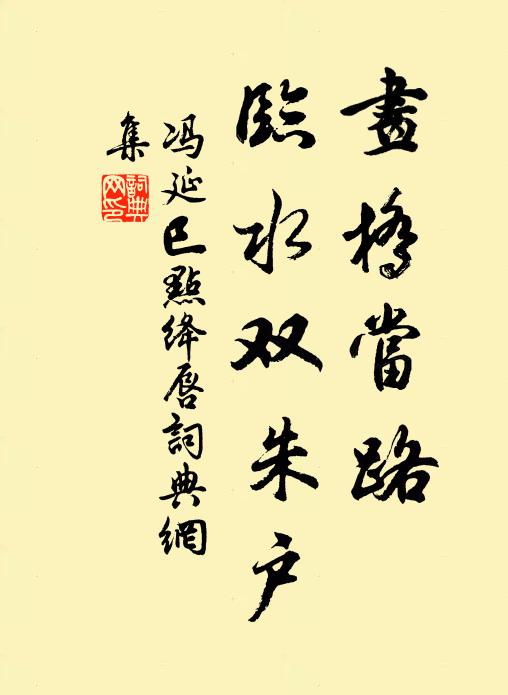 畫橋當路
臨水双朱户
冯延巳點绛唇詞典網
集
詞典
网印